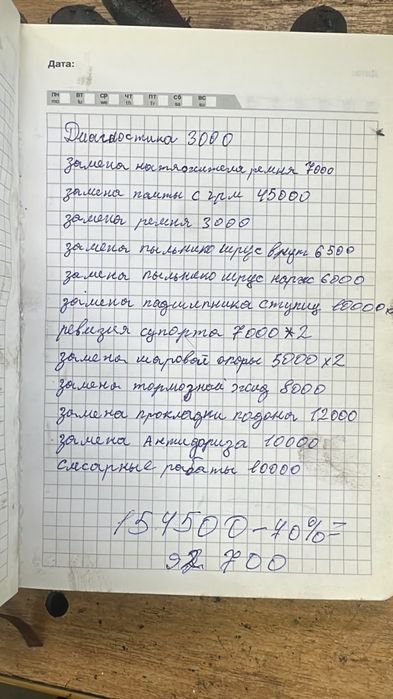 Дата:
ПН ВТ СР ЧТ ПТ СБ ВС
mo tu we th fr sa su
Диагностика 3000
замена натяжителя ремня 7000
замена помпы с грм 45000
замена ремня 3000
замена пыльнико шрус внут 6500
замена пыльнико шрус нарж 6000
замена подшипника ступиц 10000
ревизия супорта 7000*2
замена шаровой опоры 5000x2
замена тормозной жид 8000
замена прокладки падона 12000
замена Антифриза 10000
слесарные работы 10000
154500-40%=
92 700